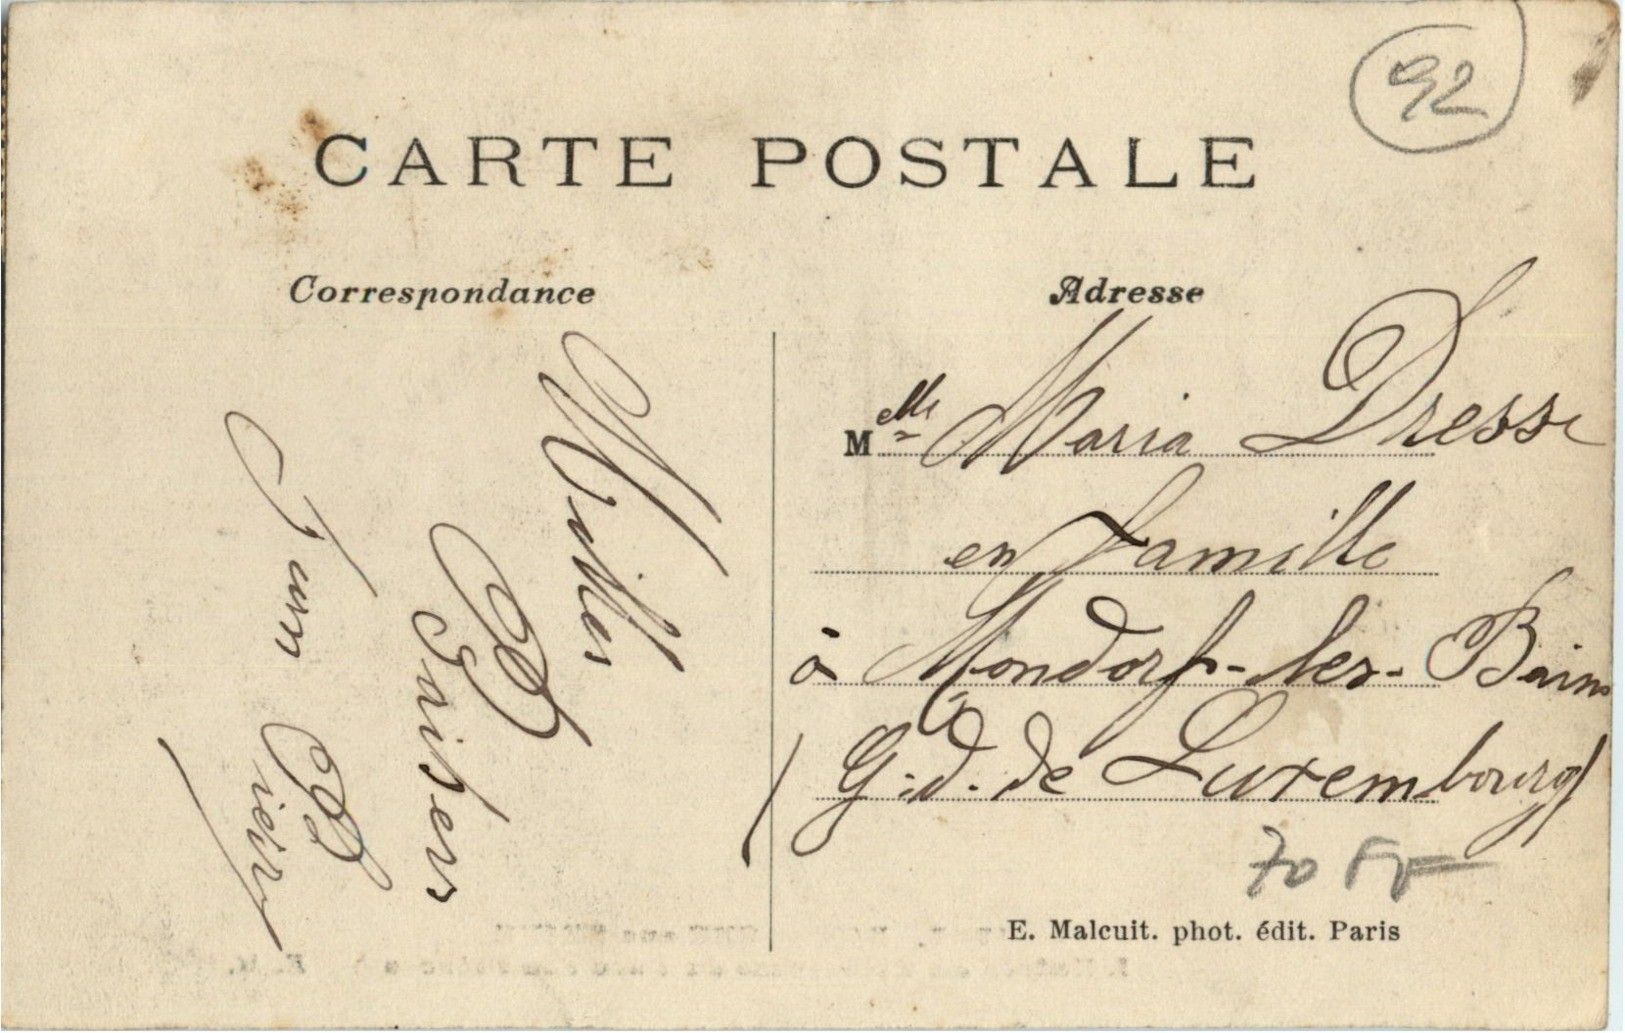 92
CARTE POSTALE
Correspondance
Milles
Baisers
Jean Pierre
Adresse
Mlle Maria Dresse
en famille
à Mondorf-les-Bains
(G.d. de Luxembourg)
70 FF
E. Malcuit. phot. édit. Paris